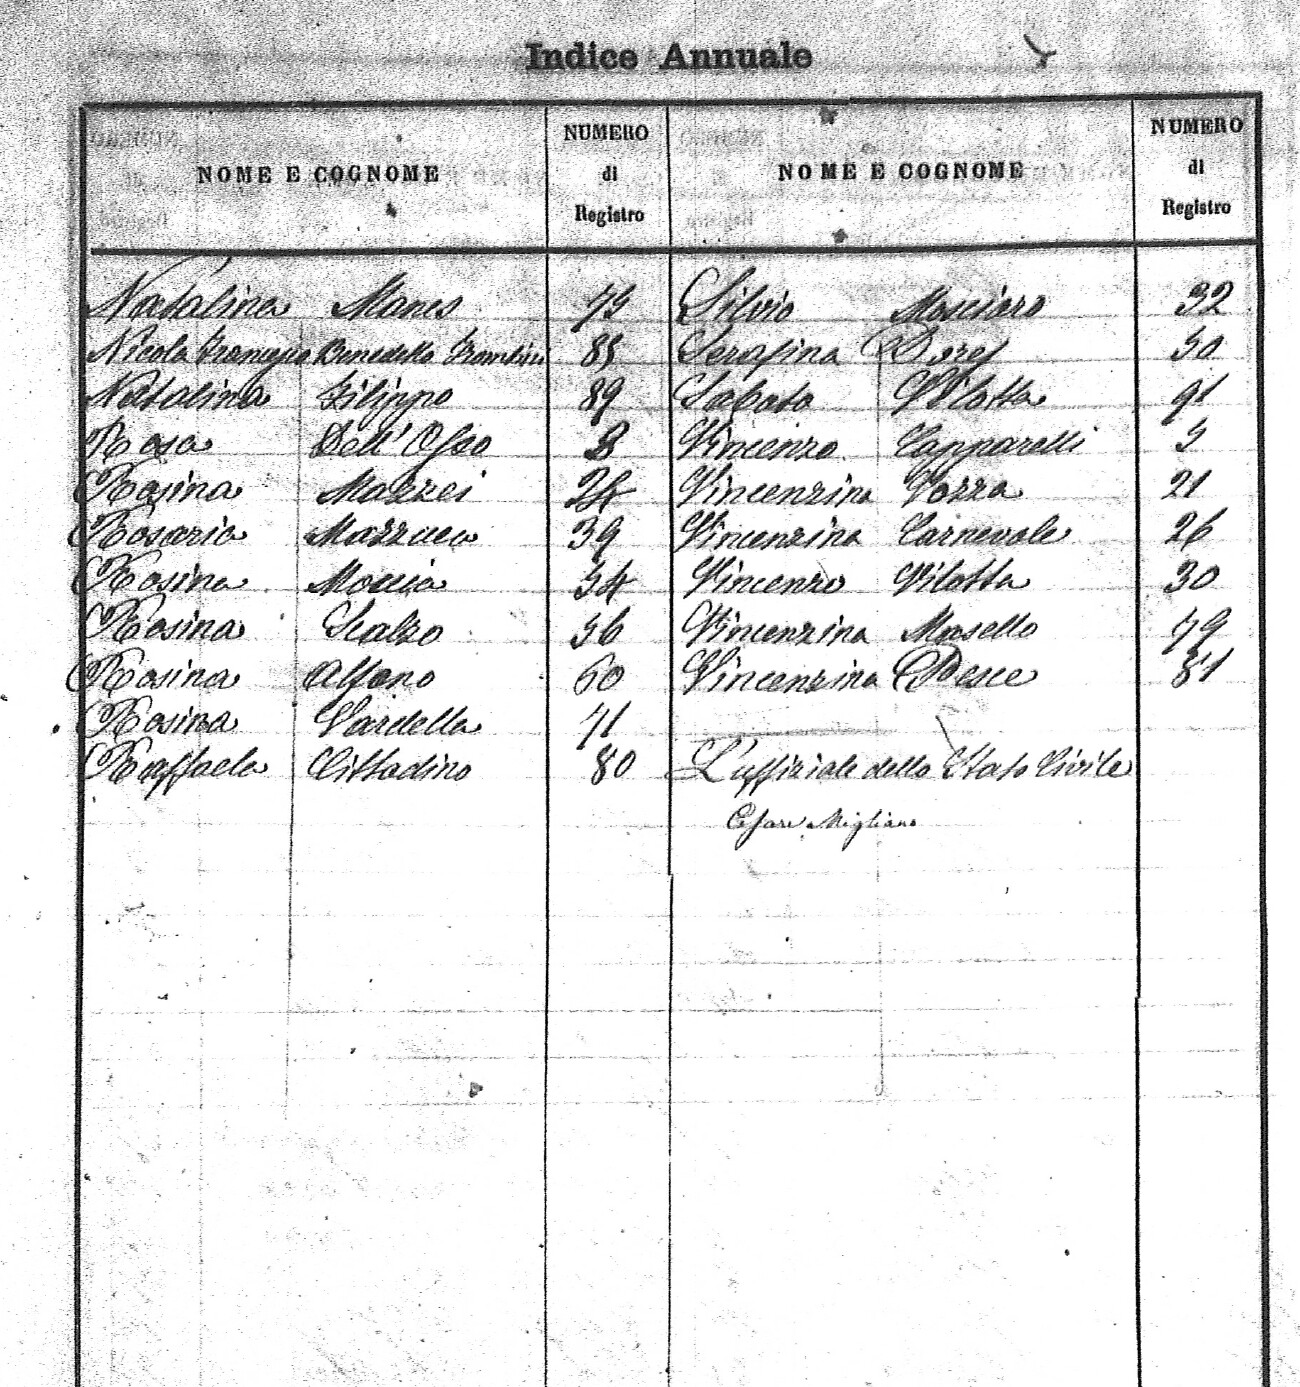 Indice Annuale
NOME E COGNOME
NUMERO
di
Registro
NOME E COGNOME
NUMERO
di
Registro
Natalina Manes
Nicola Francesco Benedetto 85
Natalina Filippo 89
Rosa Dell' Osso
Rosina Mazzei 24
Rosario Mazzuca 39
Rosina Moccia 54
Rosina Scalzo 56
Rosina Alfano 60
Rosina Vardella 71
Raffaela Cittadino 80
Silvio Mosciaro 32
Serafina 50
Sabato Vilotta 91
Vincenzo Capparelli 5
Vincenzina Pozza 21
Vincenzina Carnevale 26
Vincenzo Vilotta 30
Vincenzina Mosello 79
Vincenzina Pesce 81
L'uffiziale dello Stato Civile
Cesare Migliano